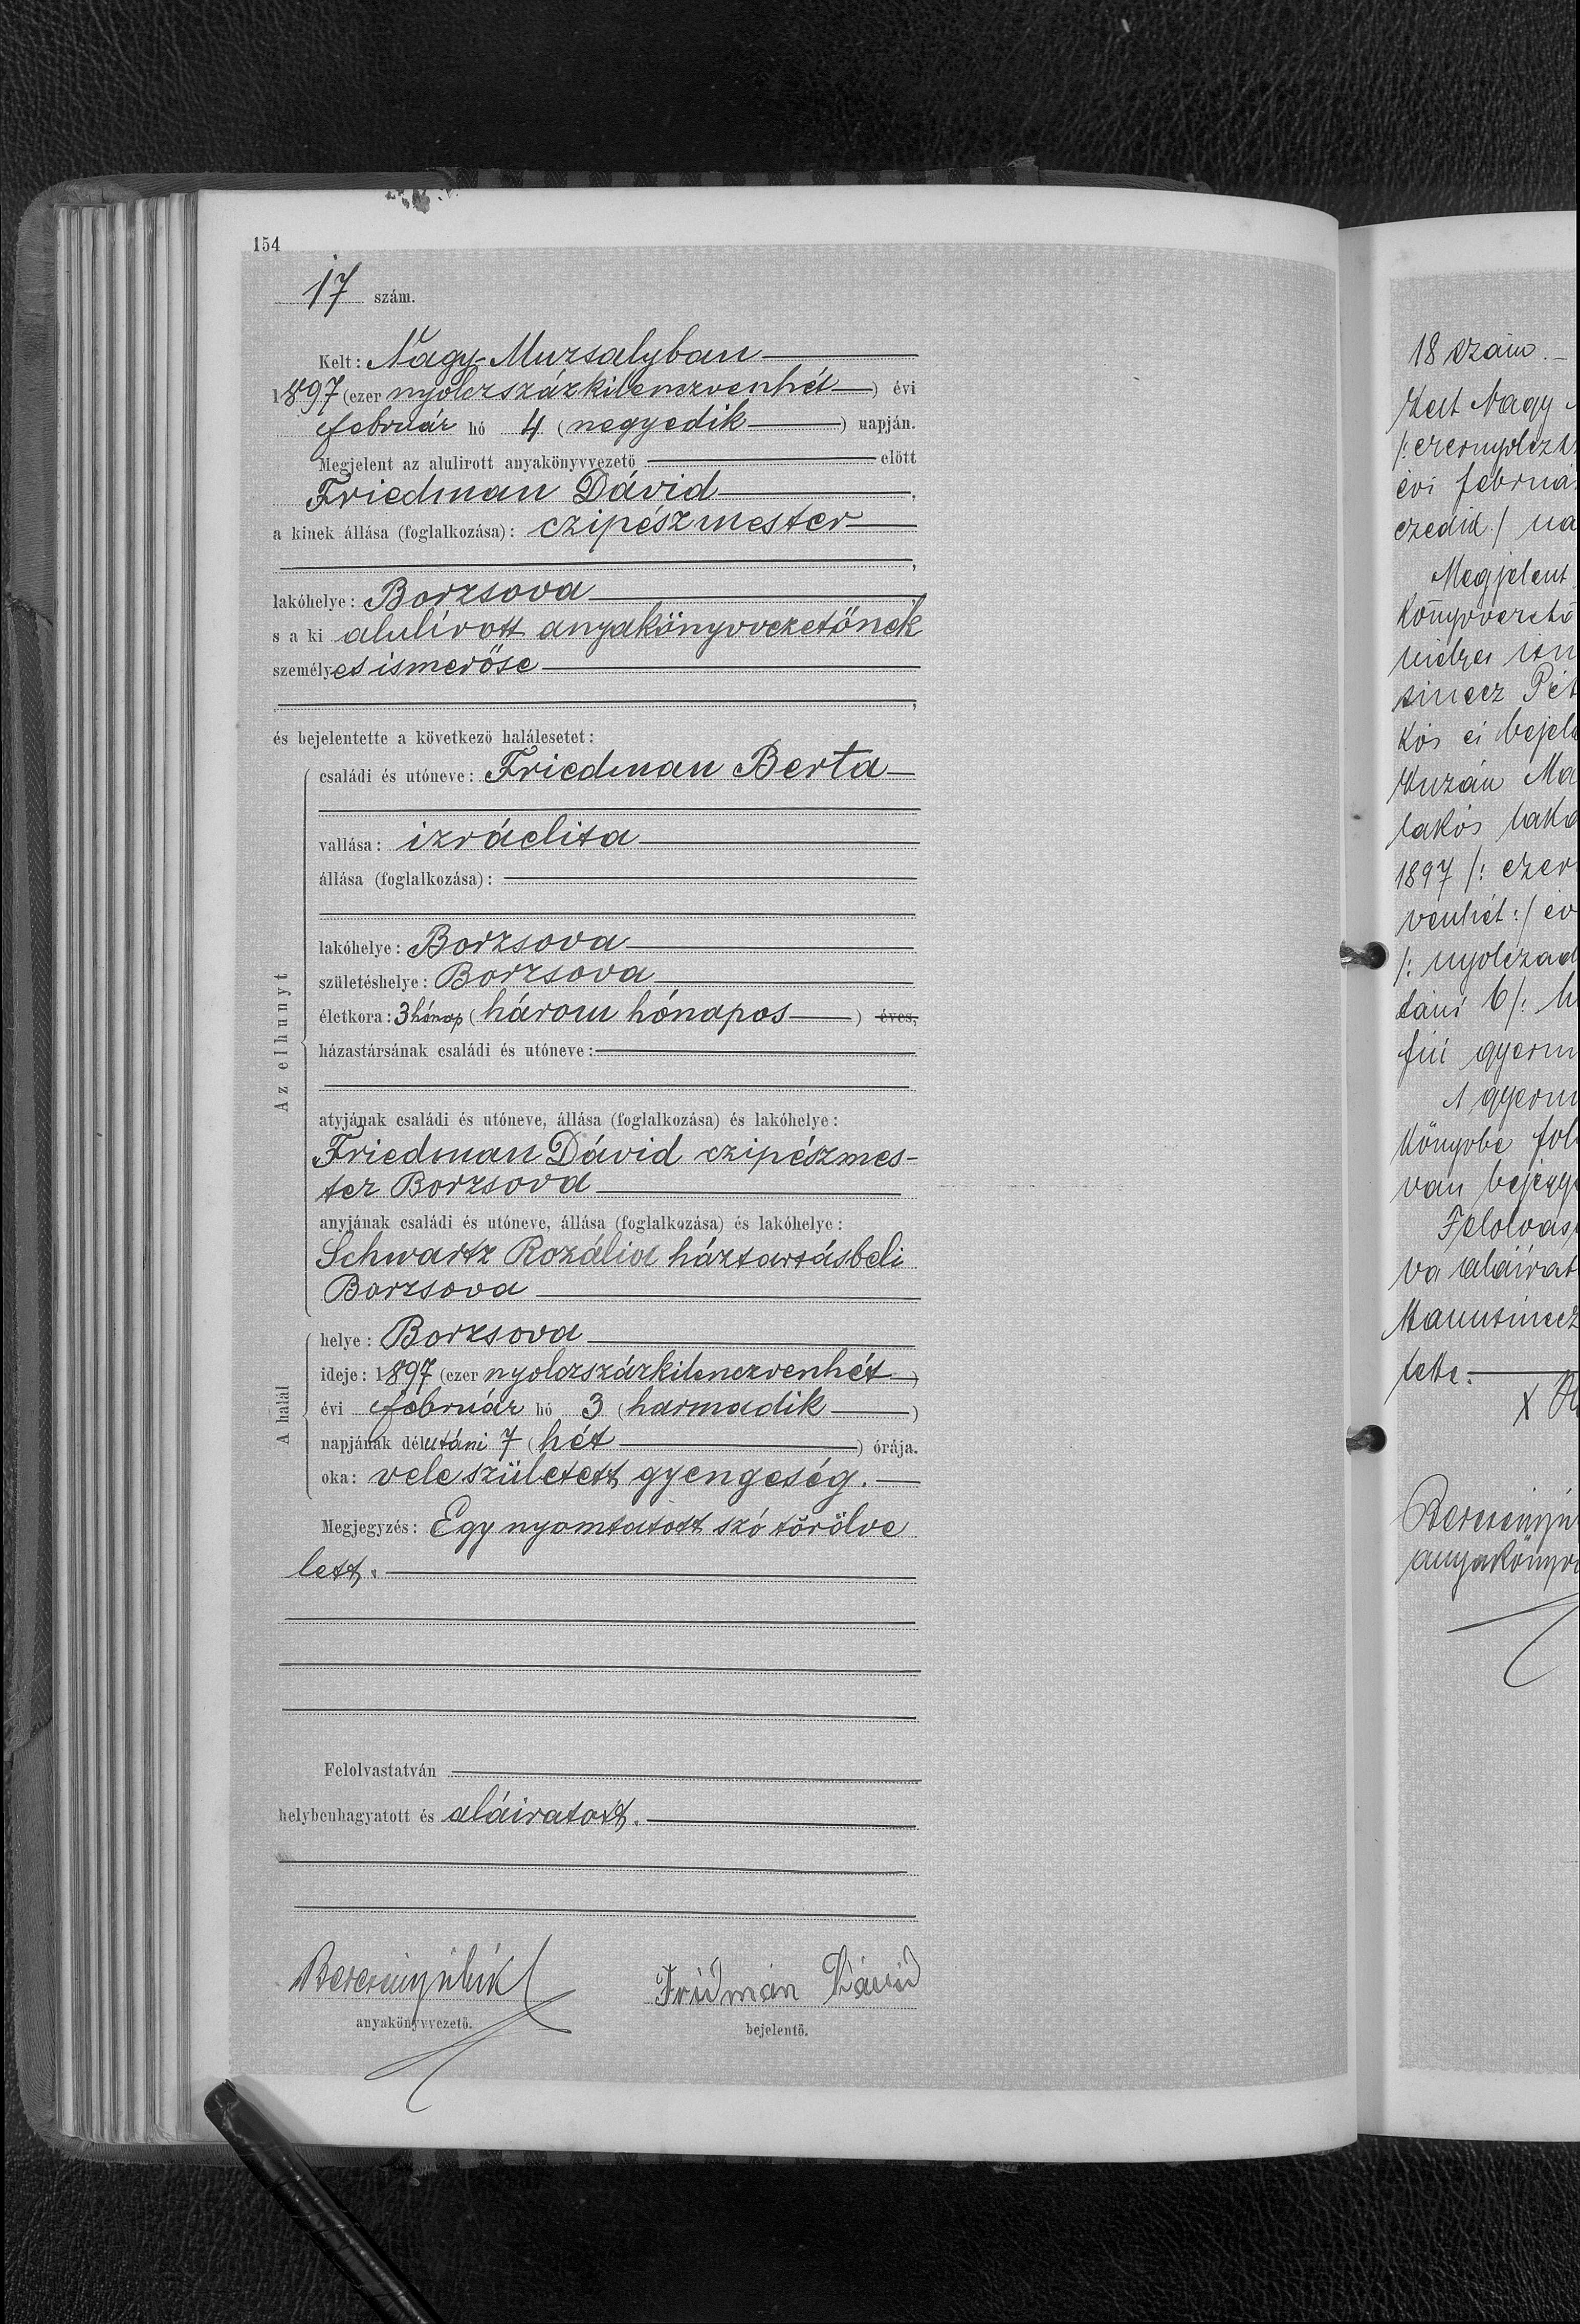 154
17 szám.
Kelt: Nagy-Muzsalyban
1897 (ezer nyolczszázkilenczvenhét) évi
február hó 4 (negyedik) napján.
Megjelent az alulirott anyakönyvvezető előtt
Friedman Dávid,
a kinek állása (foglalkozása): czipészmester
,
lakóhelye: Borzsova
s a ki alulírott anyakönyvvezetőnek
személyes ismerőse
,
és bejelentette a következő halálesetet:
Az elhunyt
családi és utóneve: Friedman Berta
vallása: izráelita
állása (foglalkozása):
lakóhelye: Borzsova
születéshelye: Borzsova
életkora: 3 hónap (három hónapos) éves,
házastársának családi és utóneve:
atyjának családi és utóneve, állása (foglalkozása) és lakóhelye:
Friedman Dávid czipészmes-
ter Borzsova
anyjának családi és utóneve, állása (foglalkozása) és lakóhelye:
Schwartz Rozália háztartásbeli
Borzsova
A halál
helye: Borzsova
ideje: 1897 (ezer nyolczszázkilenczvenhét)
évi február hó 3 (harmadik)
napjának délutáni 7 (hét) órája.
oka: vele született gyengeség.
Megjegyzés: Egy nyomtatott szó törölve
lett.
Felolvastatván
helybenhagyatott és aláiratott.
anyakönyvvezető.
Fridmán Dávid
bejelentő.
18 szám.
Kelt Nagy
évi februá
Megjelent
könyvvezető
Pét
és bejele
Ma
lakós lakó
1897 /: ezer
venhét :/ év
/: nyolczad
táni 6 /: h
fiú gyerm
A gyerm
könyvbe fol
van bejegy
Felolvas
va aláírat
tette.
X
anyakönyv